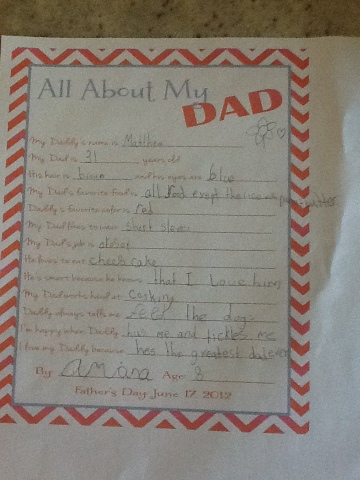 All About My
DAD
My Daddy's name is Matthew
My Dad is 31 years old
His hair is broun and his eyes are blue
My Dad's favorite food is all food exept the rice with
Daddy's favorite color is red
My Dad likes to wear short sleeve
My Dad's job is
He loves to eat cheek cake
He's smart because he knows that I Love him
My Dad works hard at Cooking
Daddy always tells me feed the dog
I'm happy when Daddy hug me and tickles me
I love my Daddy because hes the greatest dad ever
By Amara Age 8
Father's Day June 17, 2012